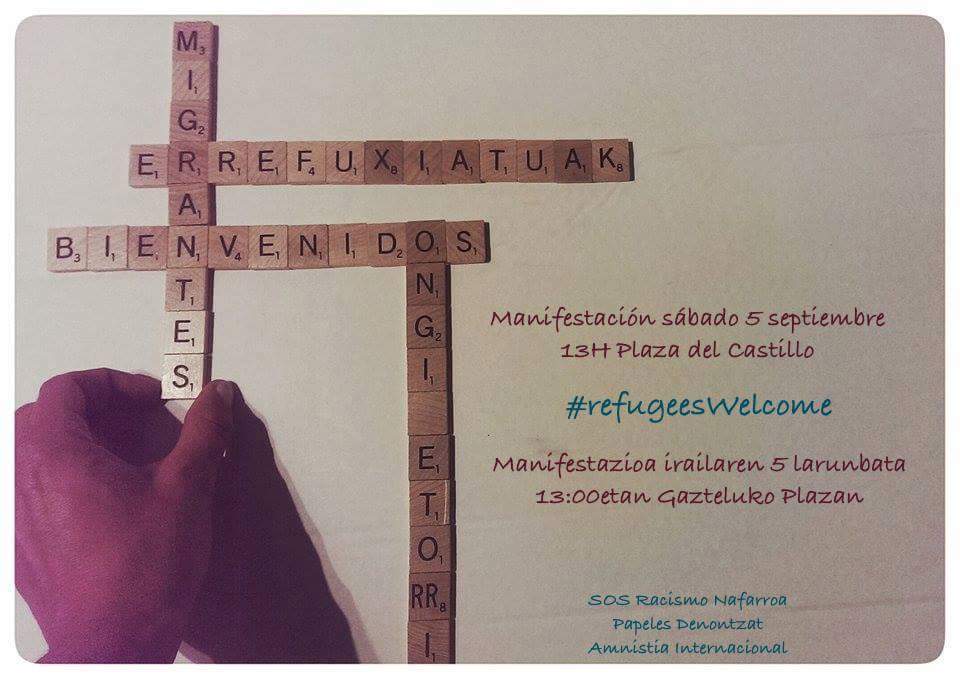 MIGRANTES
ERREFUXIATUAK
BIENVENIDOS
ONGI ETORRI
Manifestación sábado 5 septiembre
13H Plaza del Castillo
#refugeesWelcome
Manifestazioa irailaren 5 larunbata
13:00etan Gazteluko Plazan
SOS Racismo Nafarroa
Papeles Denontzat
Amnistia Internacional